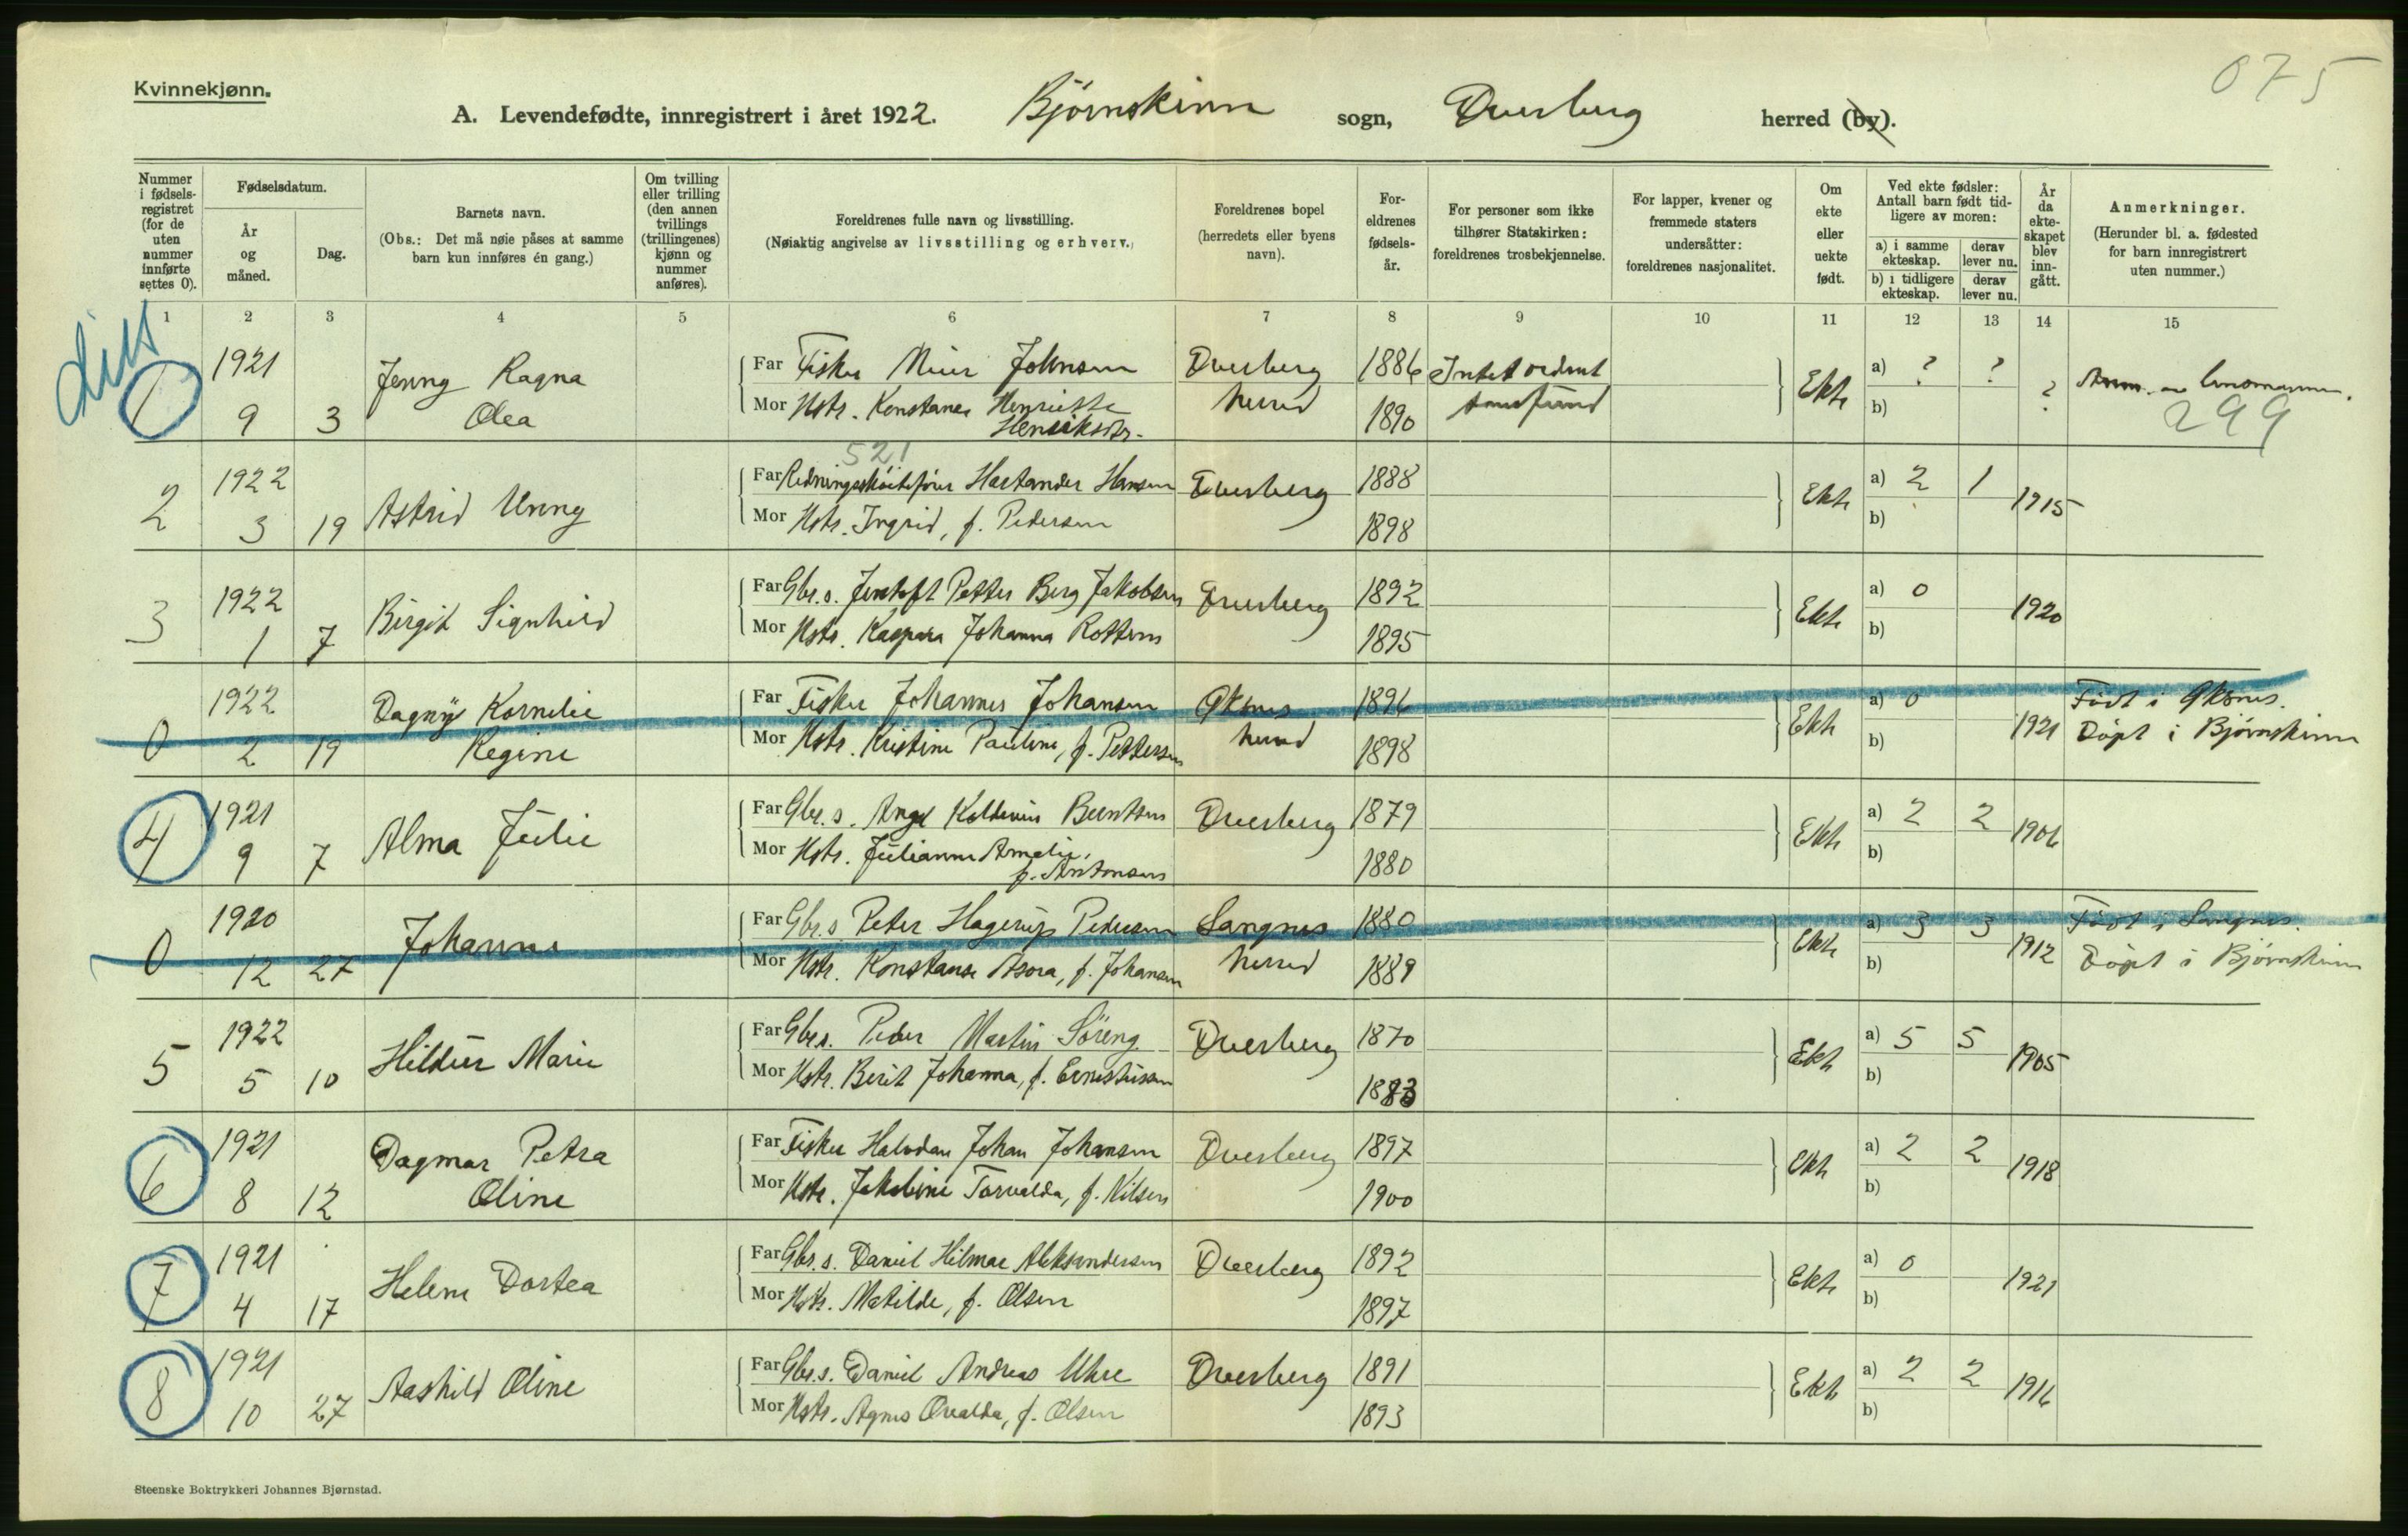 Kvinnekjønn.
075
A. Levendefødte, innregistrert i året 1922. Bjørnskinn sogn, Dverberg herred (by).
Nummer i fødselsregistret (for de uten nummer innførte settes 0).
Fødselsdatum.
År og måned.
Dag.
Barnets navn.
(Obs.: Det må nøie påses at samme barn kun innføres én gang.)
Om tvilling eller trilling (den annen tvillings (trillingenes) kjønn og nummer anføres).
Foreldrenes fulle navn og livsstilling.
(Nøiaktig angivelse av livsstilling og erhverv.)
Foreldrenes bopel (herredets eller byens navn).
Foreldrenes fødselsår.
For personer som ikke tilhører Statskirken: foreldrenes trosbekjennelse.
For lapper, kvener og fremmede staters undersåtter: foreldrenes nasjonalitet.
Om ekte eller uekte født.
Ved ekte fødsler: Antall barn født tidligere av moren:
a) i samme ekteskap. derav lever nu.
b) i tidligere ekteskap. derav lever nu.
År da ekteskapet blev inngått.
Anmerkninger.
(Herunder bl. a. fødested for barn innregistrert uten nummer.)
1 2 3 4 5 6 7 8 9 10 11 12 13 14 15
1 1921 9 3 Jenny Ragna Olea
Far Fisker Johnsen Dverberg herred 1886 Intet
Mor Hstr. Henriette Henriksdtr. 1890
Ekte a) ? ? b) ?
299
521
2 1922 3 19 Astrid Unny
Far Redningsskøitefører Hartander Hansen Dverberg 1888
Mor Hstr. Ingrid, f. Pedersen 1898
Ekte a) 2 1 b) 1915
3 1922 1 7 Birgit Signhild
Far Gbr.s. Jentoft Petter Berg Jakobsen Dverberg 1892
Mor Hstr. Kaspara Johanna 1895
Ekte a) 0 b) 1920
0 1922 2 19 Dagny Kornelie Regine
Far Fisker Johannes Johansen Øksnes herred 1896
Mor Hstr. Kristine Pauline, f. Pettersen 1898
Ekte a) 0 b) 1921
Født i Øksnes.
Døpt i Bjørnskinn
4 1921 9 7 Alma Julie
Far Gbr.s. Berntsen Dverberg 1879
Mor Hstr. Julianne Amalie, f. Antonsen 1880
Ekte a) 2 2 b) 1906
0 1920 12 27 Johanne
Far Gbr.s Peter Hagerup Pedersen Langnes herred 1880
Mor Hstr. Konstanse Asora, f. Johansen 1889
Ekte a) 3 3 b) 1912
Født i Langnes.
Døpt i Bjørnskinn
5 1922 5 10 Hildur Marie
Far Gbr.s. Peder Martin Søreng Dverberg 1870
Mor Hstr. Berit Johanna, f. Ernestussen 1883
Ekte a) 5 5 b) 1905
6 1921 8 12 Dagmar Petra Oline
Far Fisker Halvdan Johan Johansen Dverberg 1897
Mor Hstr. Jakobine Torvalda, f. Nilsen 1900
Ekte a) 2 2 b) 1918
7 1921 4 17 Helene Dortea
Far Gbr.s. Daniel Hilmar Aleksandersen Dverberg 1892
Mor Hstr. Matilde, f. Olsen 1897
Ekte a) 0 b) 1921
8 1921 10 27 Aashild Oline
Far Gbr.s. Daniel Andreas Uhre Dverberg 1891
Mor Hstr. Agnes Ovalda, f. Olsen 1893
Ekte a) 2 2 b) 1916
Steenske Boktrykkeri Johannes Bjørnstad.